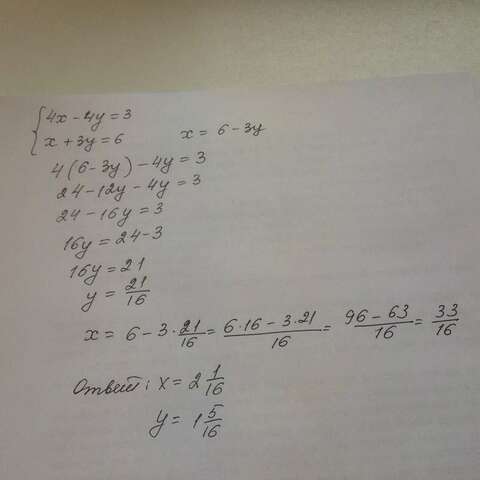 4x - 4y = 3
x + 3y = 6    x = 6 - 3y
4(6 - 3y) - 4y = 3
24 - 12y - 4y = 3
24 - 16y = 3
16y = 24 - 3
16y = 21
y = 21/16
x = 6 - 3·21/16 = (6·16 - 3·21)/16 = (96 - 63)/16 = 33/16
Ответ: x = 2 1/16
y = 1 5/16